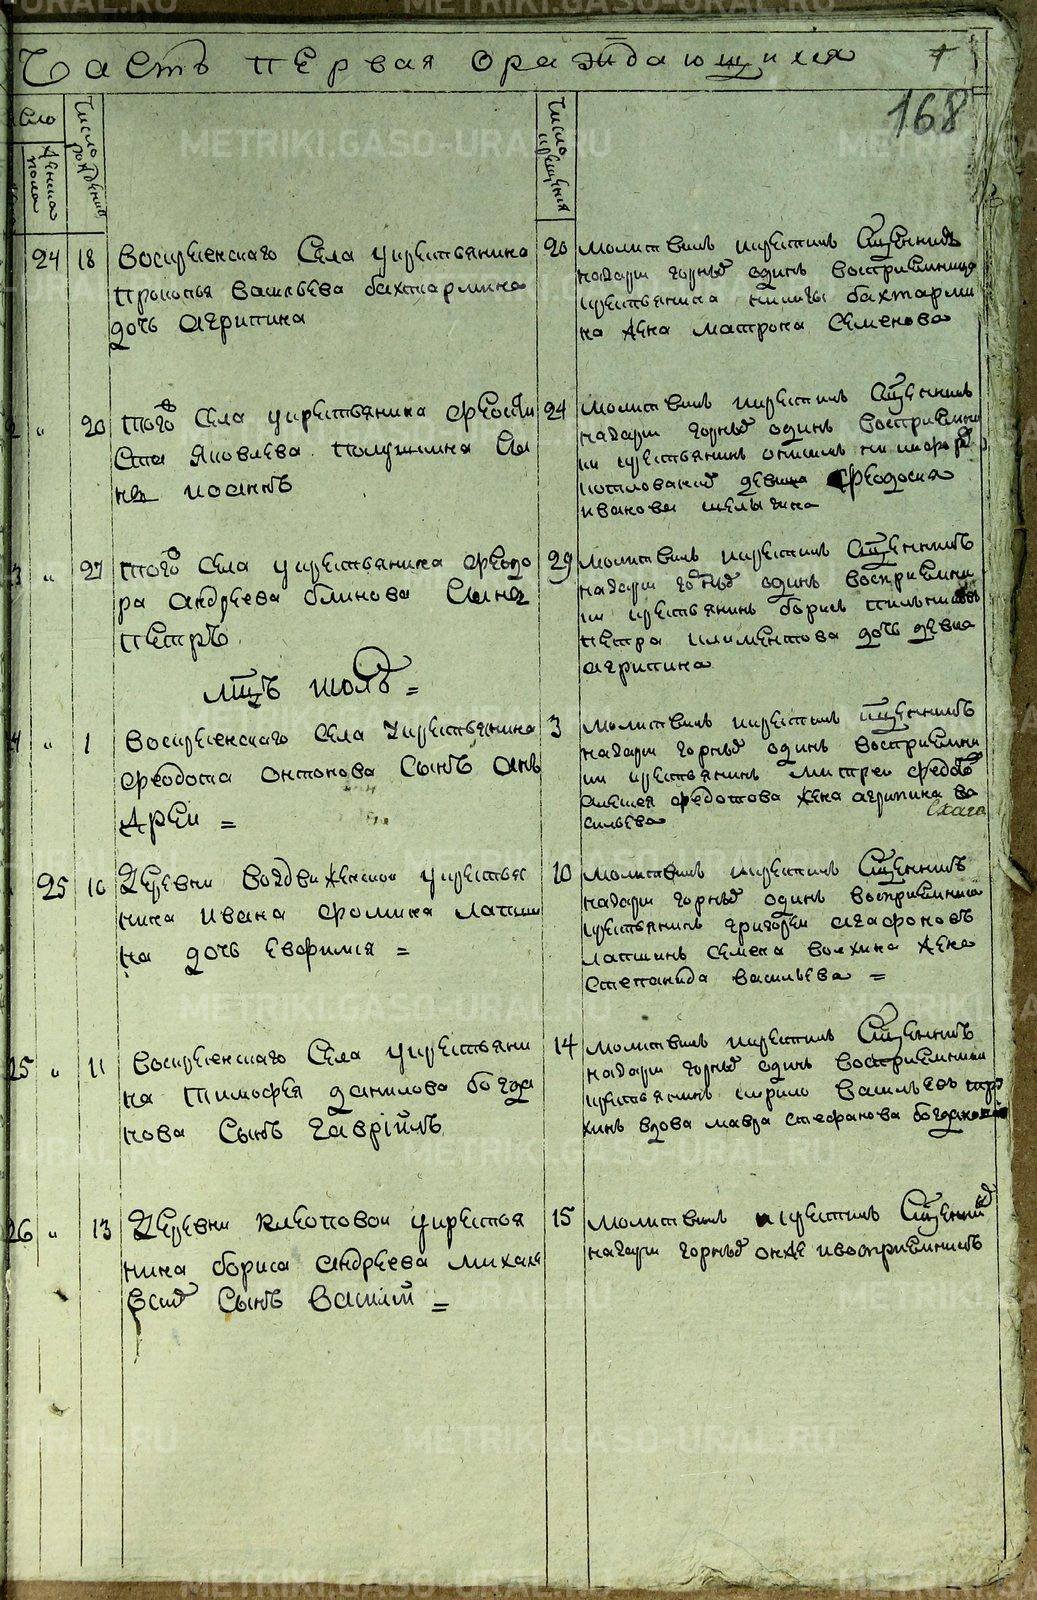 Часть первая ораждающихся
168
Число рождения
Женска пола
Число крещения
24 18 Воскресенскаго Села у крестьянина
Прокопья Васильева бахтармина
дочь агрипина
20 молитвилъ и крестилъ Сщенникъ
назари горный одинъ восприемница
крестьянина никиты бахтарми
на жена матрона Семенова
" 20 того Села у крестьянина Феокти
ста Яковлева полушкина Сы
нъ иоаннъ
24 молитвилъ и крестилъ Сщенникъ
назари горный одинъ восприемни
ки крестьянинъ
девица Феодосия
иванова
" 27 того Села у крестьянина Феодо
ра андреева блинова Сынъ
петръ
29 молитвилъ и крестилъ Сщенникъ
назари горный одинъ восприемни
ки крестьянинъ борисъ
петра климентова дочь девка
агрипина
мцъ июль =
4 " 1 Воскресенскаго Села у крестьянина
феодота онтонова Сынъ ан
дреи =
3 молитвилъ и крестилъ сщенникъ
назари горный одинъ восприемни
ки крестьянинъ митреи федо
алексея федотова жена агрипина ва
сильева
25 10 Деревни Воздвиженской у крестья
нина ивана фомина лапши
на дочь евфимия =
10 молитвилъ и крестилъ Сщенникъ
назари горный одинъ восприемники
крестьянинъ григореи агафоновъ
лапшинъ семена волхина жена
степанида васильева =
25 " 11 Воскресенскаго Села у крестьяни
на тимофея данилова богда
нова Сынъ гавріилъ
14 молитвилъ и крестилъ Сщенникъ
назари горный одинъ восприемники
крестьянинъ кирило васильевъ
вдова мавра стефанова богданова
26 " 13 Деревни клеоповой у крестья
нина бориса андреева михале
вских Сынъ василій =
15 молитвилъ и крестилъ Сщенникъ
назари горный онже ивосприемникъ
METRIKI.GASO-URAL.RU